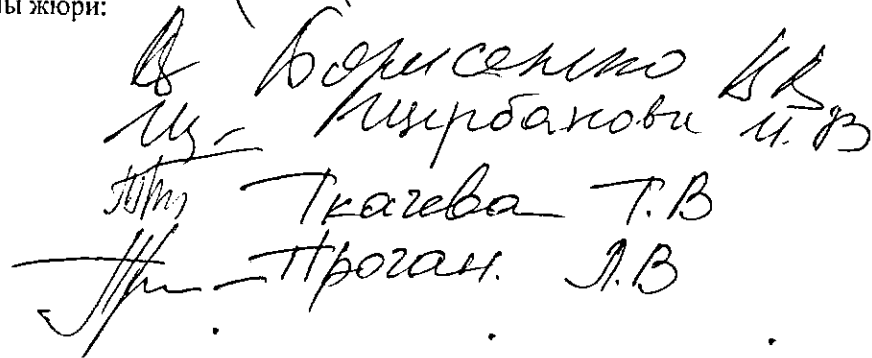 ны жюри:
Борисенко В.В
Щербанова И.В
Ткачева Т.В
Проган. Л.В